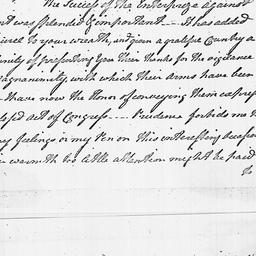 The Success of the Enterprize against
nt was splendid & important — It has added
urel to your wreath, and given a grateful Country a
unity of presenting you Their thanks for the vigilance
agnanimity, with which their arms have been
I have now the Honor of conveying them expres
closed act of Congress — Prudence forbids me t
my feelings or my Pen on this interesting Occasion
warmth too little attention might be paid
to